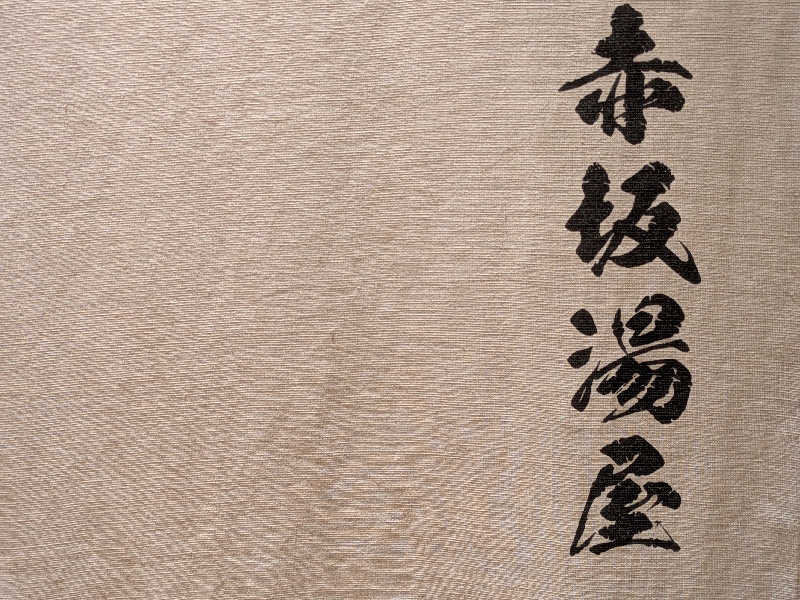 赤坂湯屋